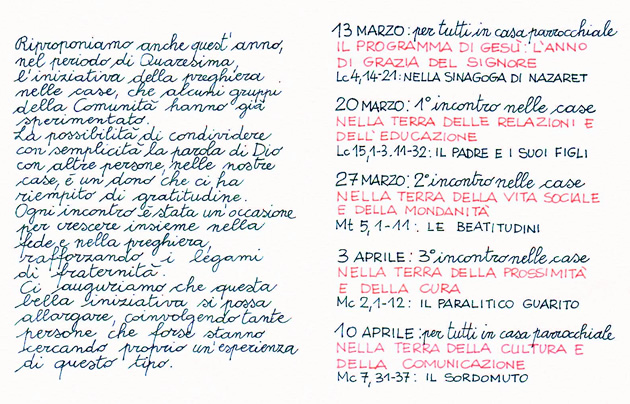 Riproponiamo anche quest'anno,
nel periodo di Quaresima,
l'iniziativa della preghiera
nelle case, che alcuni gruppi
della Comunità hanno già
sperimentato.
La possibilità di condividere
con semplicità la parola di Dio
con altre persone, nelle nostre
case, è un dono che ci ha
riempito di gratitudine.
Ogni incontro è stata un'occasione
per crescere insieme nella
fede e nella preghiera,
rafforzando i legami
di fraternità.
Ci auguriamo che questa
bella iniziativa si possa
allargare, coinvolgendo tante
persone che forse stanno
cercando proprio un'esperienza
di questo tipo.
13 MARZO: per tutti in casa parrocchiale
IL PROGRAMMA DI GESÙ: L'ANNO
DI GRAZIA DEL SIGNORE
Lc 4,14-21: NELLA SINAGOGA DI NAZARET
20 MARZO: 1° incontro nelle case
NELLA TERRA DELLE RELAZIONI E
DELL'EDUCAZIONE
Lc 15,1-3.11-32: IL PADRE E I SUOI FIGLI
27 MARZO: 2° incontro nelle case
NELLA TERRA DELLA VITA SOCIALE
E DELLA MONDANITÀ
Mt 5,1-11: LE BEATITUDINI
3 APRILE: 3° incontro nelle case
NELLA TERRA DELLA PROSSIMITÀ
E DELLA CURA
Mc 2,1-12: IL PARALITICO GUARITO
10 APRILE: per tutti in casa parrocchiale
NELLA TERRA DELLA CULTURA E
DELLA COMUNICAZIONE
Mc 7,31-37: IL SORDOMUTO